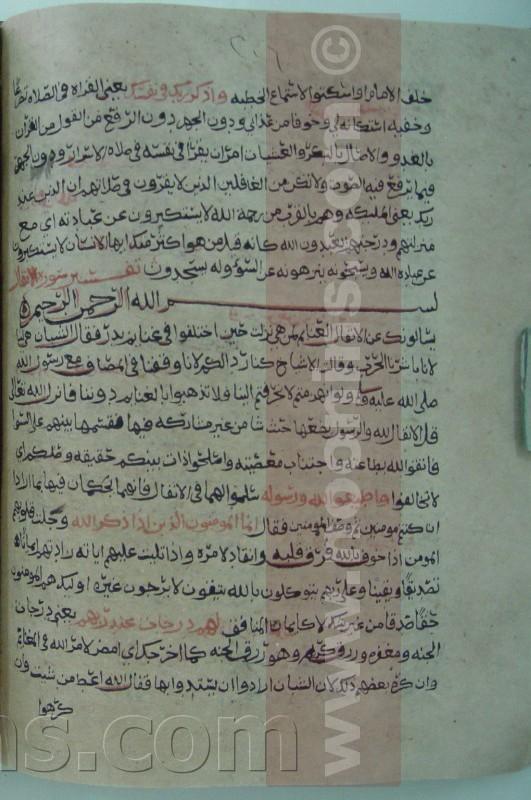 ٢٠٦
خلف الامام او اسكتوا لاستماع الخطبه واذكر ربك في نفسك يعني القراه في الصلاه تضرعا
وخفيه استكانه لي وخوفا من عذابي ودون الجهر دون الرفع من القول من القران
بالغدو والاصال بالبكر والعشيات امر ان يقرا في نفسه في صلاه الاسرار ودون الجهر
فيما يرفع فيه الصوت ولا تكن من الغافلين الذين لا يقرون في صلاتهم ان الذين عند
ربك يعني الملئكه وهم بالقرب من رحمه الله لا يستكبرون عن عبادته اي مع
منزلتهم ودرجتهم يعبدون الله كانه قيل من هو اكثر منك ايها الانسان لا يستكبرون
عن عباده الله ويسبحونه ينزهونه عن السوء وله يسجدون تفسير سورة الانفال
بسم الله الرحمن الرحيم
يسالونك عن الانفال الغنايم لمن هي نزلت حين اختلفوا في غنايم بدر فقال الشبان هي لنا
لانا باشرنا الحرب وقالت الاشياخ كنا ردا لكم لانا وقفنا في المصاف مع رسول الله
صلى الله عليه ولو انهزمتم لانحزتم الينا فلا تذهبوا بالغنايم دوننا فانزل الله تعالى
قل الانفال لله والرسول يضعها حيث شا من غير مشاركه فيها فقسمها بينهم على السوا
واتقوا الله بطاعته واجتناب معصيته واصلحوا ذات بينكم حقيقه وصلكم اي
لا تخالفوا واطيعوا الله ورسوله سلموا لهما في الانفال فانهما يحكمان فيها ما ارادا
ان كنتم مومنين ثم وصف المومنين فقال انما المومنون الذين اذا ذكر الله وجلت قلوبهم
المومن اذا خوف بالله فرق قلبه وانقاد لامره واذا تليت عليهم اياته زادتهم ايمانا
تصديقا ويقينا وعلى ربهم يتوكلون بالله يثقون لا يرجون غيره اوليك هم المومنون
حقا صدقا من غير شك لا كايمان المنافقين لهم درجات عند ربهم يعني درجات
الجنه ومغفره ورزق كريم وهو رزق الجنه كما اخرجك اي امض لامر الله في الغنايم
وان كره بعضهم ذلك لان الشبان ارادوا ان يستبدوا بها فقال الله اعط من شيت وان
كرهوا
www.mocriis.com ©
ns.com